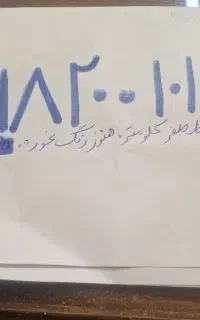 ۱۸۲۰۰۱۰۱
صفر کلومتر هنوز زنگ نخورده